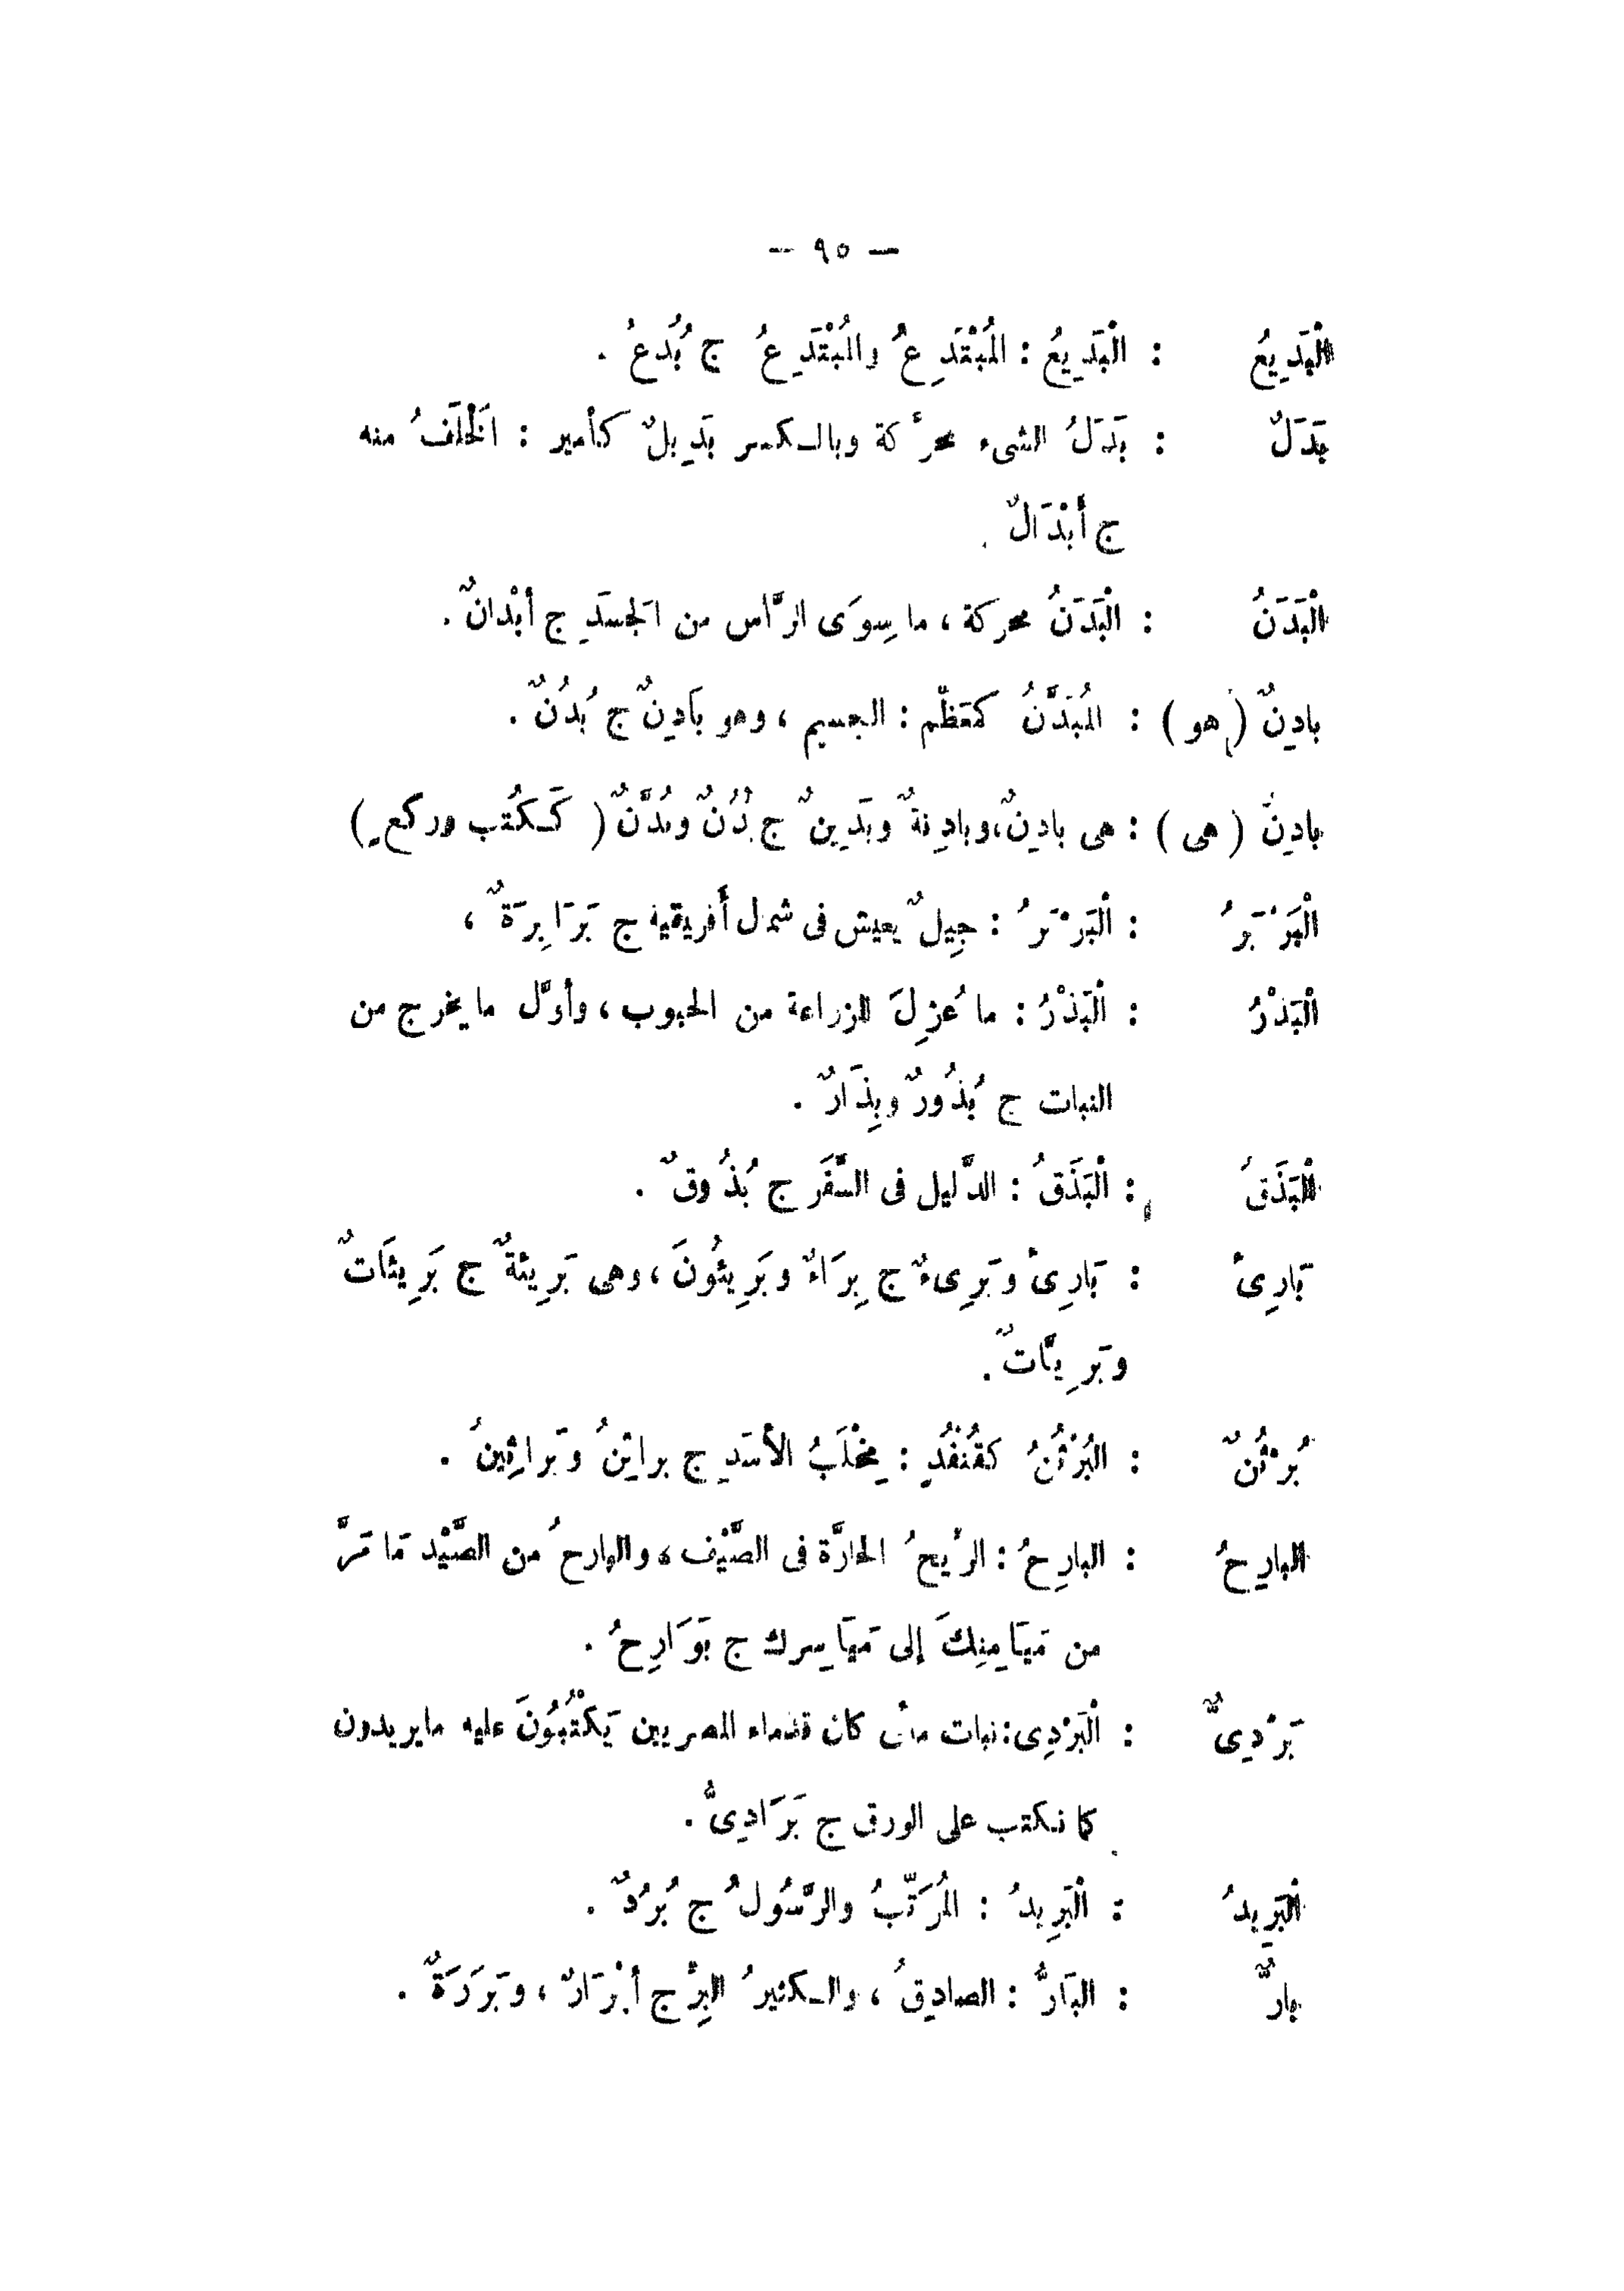 — ٩٥ —
الْبَدِيعُ : الْبَدِيعُ : المُبْتَدِعُ والمُبْتَدَعُ ج بُدُعٌ .
بَدَلٌ : بَدَلُ الشىء محرَّكة وبالكسر بَدِيلٌ كأمير : الْخَلَفُ منه
ج أَبْدَالٌ .
الْبَدَنُ : الْبَدَنُ محركة ، ما سِوَى الرَّأس من الجسَدِ ج أبْدانٌ .
بادِنٌ ( هو ) : المُبَدَّنُ كمعَظّم : الجسيم ، وهو بَادِنٌ ج بُدُنٌ .
بادِنٌ ( هى ) : هى بادِنٌ، وبادِنةٌ وبَدِينٌ ج بُدُنٌ وبُدَّنٌ ( كَكُتب وركع )
الْبَرْبَرُ : الْبَرْبَرُ : جِيلٌ يعيش فى شمال أفريقية ج بَرَابِرَةٌ ،
الْبَذْرُ : الْبَذْرُ : ما عُزِلَ للزراعة من الحبوب ، وأوَّل ما يخرج من
النبات ج بُذُورٌ وبِذَارٌ .
الْبَذَقُ : الْبَذَقُ : الدَّليل فى السَّفَر ج بُذُوقٌ .
بَارِئٌ : بَارِئٌ وبَرِىءٌ ج بِرَاءٌ وبَرِيئُونَ ، وهى بَرِيئةٌ ج بَرِيئَاتٌ
وبَرِيَّاتٌ .
بُرْثُنٌ : البُرْثُنُ كقُنْفُدٍ : مِخْلَبُ الأسَدِ ج براثِنُ وبَراثِينُ .
البارِحُ : البارِحُ : الرِّيحُ الحارَّة فى الصَّيْف ، والبارحُ من الصَّيْد مَا مَرَّ
من مَيَامِنِكَ إلى مَيَاسِرك ج بَوَارِحُ .
بَرْدِىٌّ : الْبَرْدِى : نبات مائى كان قدماء المصريين يَكْتُبُونَ عليه ما يريدون
كما نكتب على الورق ج بَرَادِىُّ .
الْبَرِيدُ : الْبَرِيدُ : المُرَتّبُ والرَّسُولُ ج بُرُدٌ .
بارٌّ : البَارُّ : الصادِقُ ، والكثيرُ البِرِّ ج أَبْرَارٌ ، وبَرَرَةٌ .